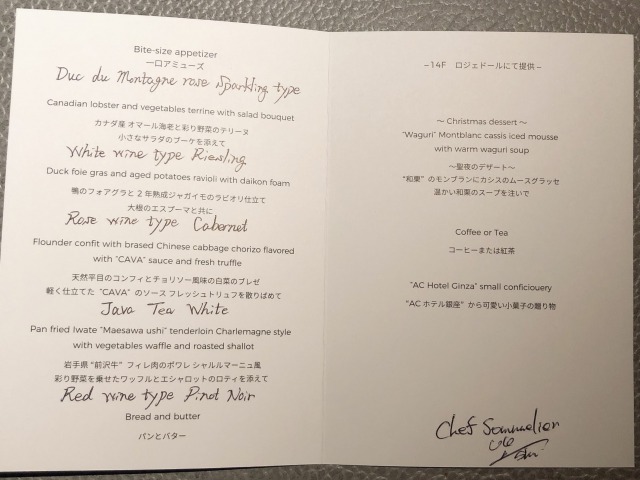 Bite-size appetizer
一口アミューズ
Duc du Montagne rose Sparkling type
Canadian lobster and vegetables terrine with salad bouquet
カナダ産 オマール海老と彩り野菜のテリーヌ
小さなサラダのブーケを添えて
White wine type Riesling
Duck foie gras and aged potatoes ravioli with daikon foam
鴨のフォアグラと 2 年熟成ジャガイモのラビオリ仕立て
大根のエスプーマと共に
Rose wine type Cabernet
Flounder confit with brased Chinese cabbage chorizo flavored
with "CAVA" sauce and fresh truffle
天然平目のコンフィとチョリソー風味の白菜のブレゼ
軽く仕立てた "CAVA" のソース フレッシュトリュフを散りばめて
Java Tea White
Pan fried Iwate "Maesawa ushi" tenderloin Charlemagne style
with vegetables waffle and roasted shallot
岩手県 "前沢牛" フィレ肉のポワレ シャルルマーニュ風
彩り野菜を乗せたワッフルとエシャロットのロティを添えて
Red wine type Pinot Noir
Bread and butter
パンとバター
–14F ロジェドールにて提供–
～ Christmas dessert ～
"Waguri" Montblanc cassis iced mousse
with warm waguri soup
～聖夜のデザート～
"和栗" のモンブランにカシスのムースグラッセ
温かい和栗のスープを注いで
Coffee or Tea
コーヒーまたは紅茶
"AC Hotel Ginza" small conficiouery
"AC ホテル銀座" から可愛い小菓子の贈り物
Chef Sommelier